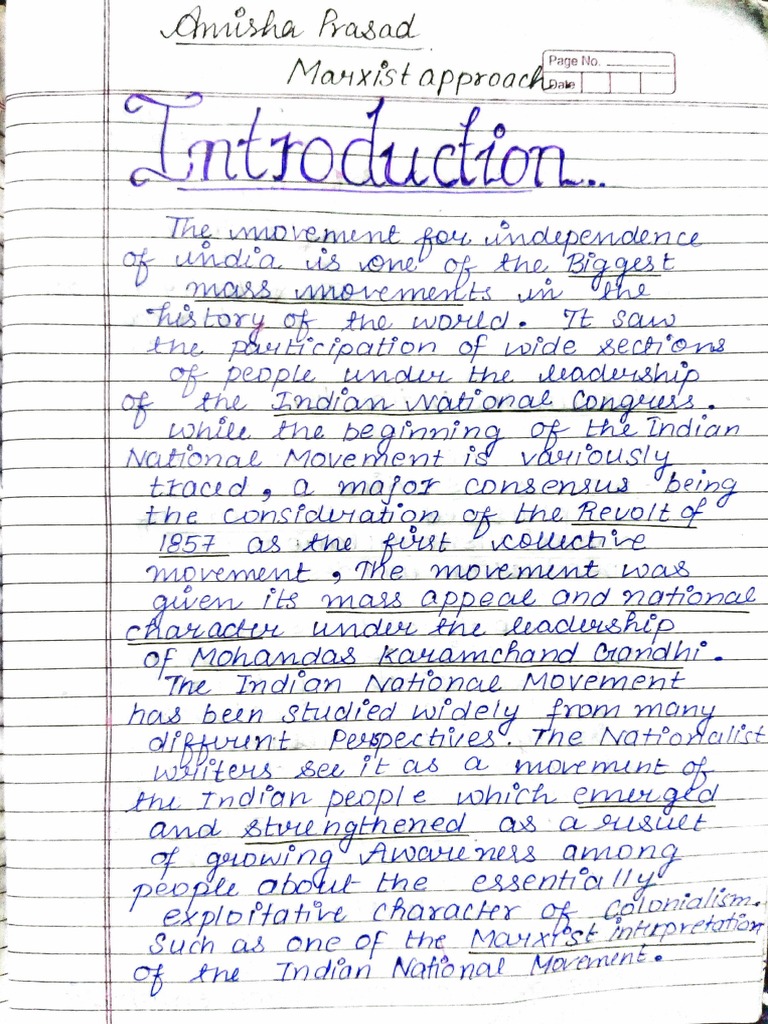 Anusha Prasad
Marxist approach
Page No.
Date
Introduction..
The movement for independence
of india is one of the Biggest
mass movements in the
history of the world. It saw
the participation of wide sections
of people under the leadership
of the Indian National Congress.
while the beginning of the Indian
National Movement is variously
traced, a major consensus being
the consideration of the Revolt of
1857 as the first collective
movement, The movement was
given its mass appeal and national
character under the leadership
of Mohandas Karamchand Gandhi.
The Indian National Movement
has been studied widely from many
different Perspectives. The Nationalist
writers see it as a movement of
the Indian people which emerged
and strengthened as a result
of growing Awareness among
people about the essentially
exploitative character of colonialism.
Such as one of the Marxist interpretation
of the Indian National Movement.